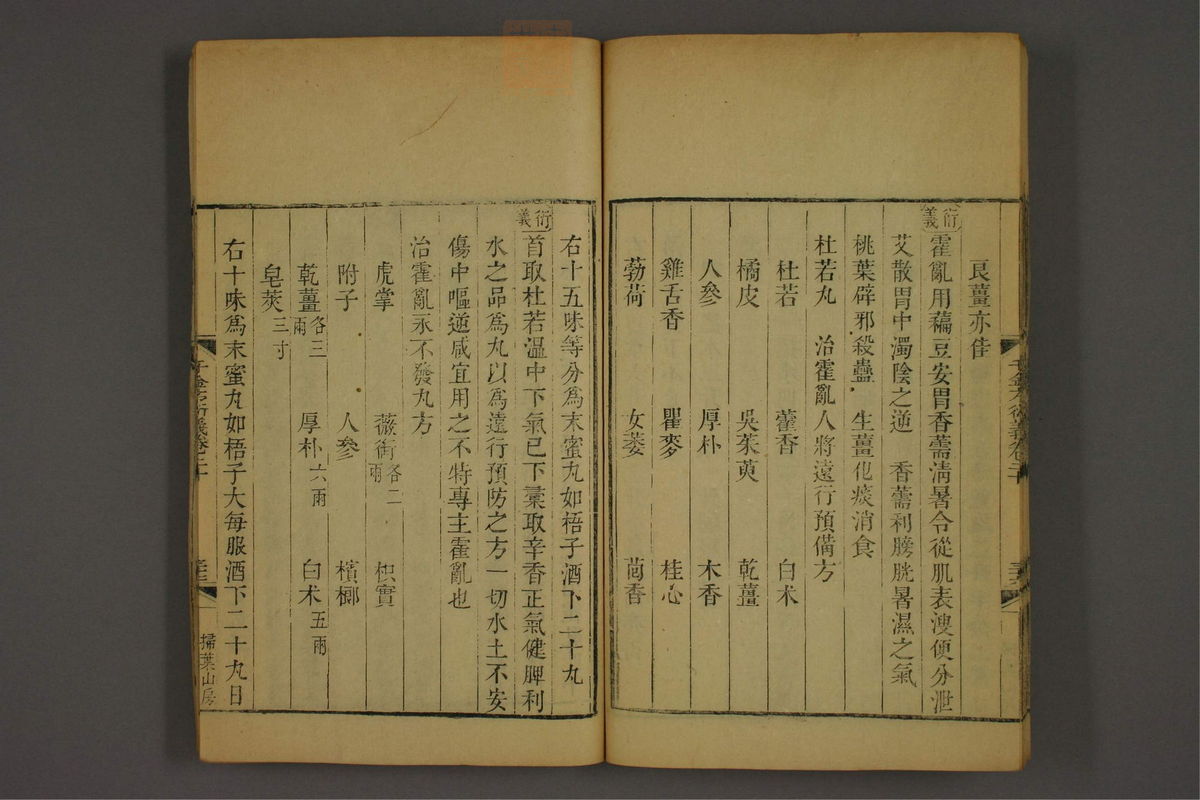 良薑亦佳
衍義
霍亂用藊豆安胃香薷清暑令從肌表溲便分泄
艾散胃中濁陰之逆 香薷利膀胱暑濕之氣
桃葉辟邪殺蠱 生薑化痰消食
杜若丸 治霍亂人將遠行預備方
杜若 藿香 白术
橘皮 吳茱萸 乾薑
人參 厚朴 木香
雞舌香 瞿麥 桂心
薄荷 女萎 茴香
右十五味等分爲末蜜丸如梧子酒下二十丸
衍義
首取杜若溫中下氣已下彙取辛香正氣健脾利
水之品爲丸以爲遠行預防之方一切水土不安
傷中嘔逆咸宜用之不特專主霍亂也
治霍亂永不發丸方
虎掌 薇銜各二兩 枳實
附子 人參 檳榔
乾薑各三兩 厚朴六兩 白术五兩
皂莢三寸
右十味爲末蜜丸如梧子大每服酒下二十丸日
千金方衍義卷二十
掃葉山房